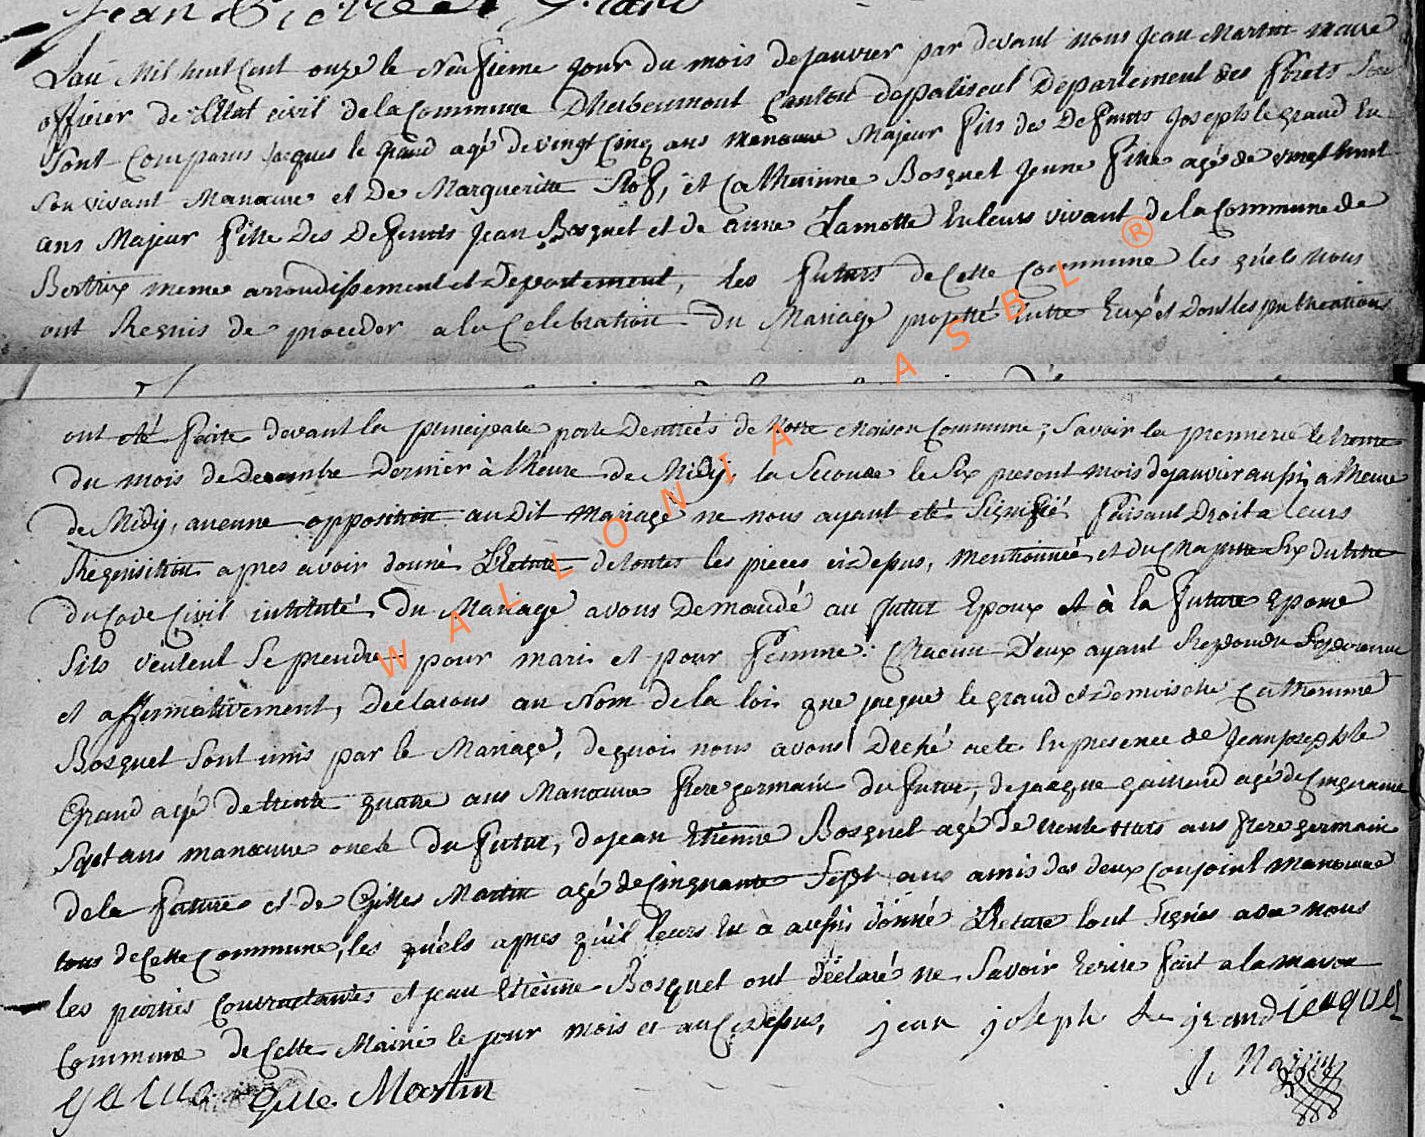 Lan Mil huit Cent onze le Neufieme Jour du mois de Janvier par devant nous Jean Martin maire
officier de l'Etat civil de la Commune Dherbeumont Canton de paliseul Departement des Forets
Sont Comparus Jacques le Grand agé de vingt Cinq ans Manœuvre Majeur fils des Defunts Joseph le grand En
Son vivant Manœuvre et De Marguerite Slof, et Catherinne Bosquet Jeune fille agée de vingt huit
ans Majeur fille Des Defunts Jean Bosquet et de anne Lamotte En leurs vivant de la Commune de
Bertrix meme arrondissement et Departement, les futurs de Cette Commune les quels Nous
ont Requis de proceder a la Celebration du Mariage projetté Entre Eux et Dont les publications
ont eté faite devant la principale porte Dentrées de Notre Maison Commune; Savoir la premiere le trente
du mois de Decembre Dernier à lheure de Midy, la Seconde le Six present mois de janvier aussi a lheure
de Midy, aucunne opposition audit Mariage ne nous ayant eté Signifié faisant Droit a leurs
Requisition apres avoir donné Lecture de toutes les pieces cidessus, Mentionnée et du Chapitre Six du titre
du Code Civil intitulé, Du Mariage avons Demandé au futur Epoux et à la future Epouse
Sils veulent Se prendre pour mari et pour Femme: Chacun Deux ayant Repondu
et affirmativement, Declarons au Nom de la loi que jacque le grand et Demoiselle Catherinne
Bosquet Sont unis par le Mariage, de quoi nous avons Dreßé acte En presence de Jean joseph le
Grand agé de trente quatre ans Manœuvre frere germain du futur, de jacque gaillard agé de Cinquante
Sept ans manœuvre oncle du futur, de jean Etienne Bosquet agé de trente ans frere germain
de la future et de Gilles Martin agé de Cinquante Sept ans amis des deux Conjoint Manœuvre
tous de Cette Commune, les quels apres qu'il leurs En a aussi donné Lecture lont Signés avec nous
les parties Contractantes et jean Etienne Bosquet ont declaré ne Savoir Ecrire fait a la maison
Commune de Cette Mairie le jour mois et an Cidessus, jean joseph le grand jeaques
Gille Martin J. Martin
WALLONIA ASBL ®